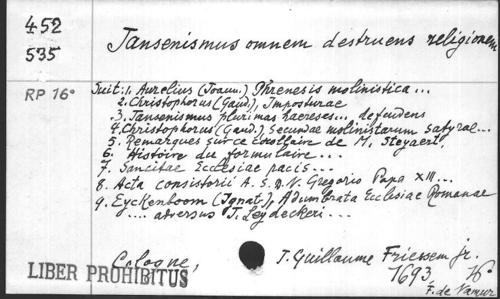 452
535
Jansenismus omnem destruens religionem
RP 16°
Suit: 1. Aurelius (Joann.) Phrenesis molinistica...
2. Christophorus (Gaud.), Imposturae
3. Jansenismus plurimas haereses... defendens
4. Christophorus (Gaud.) Secundae molinistarum satyrae...
5. Remarques sur ce corollaire de M. Steyaert
6. Histoire du formulaire...
7. Sancitae Ecclesiae pacis...
8. Acta consistorii A. S. D. N. Gregorio Papa XIII...
9. Eyckenboom (Ignat.), Adumbrata Ecclesiae Romanae
.... adversus J. Leydeckeri...
Cologne, J. Guillaume Friessem jr.
LIBER PROHIBITUS
1693, 16°
F. de Namur